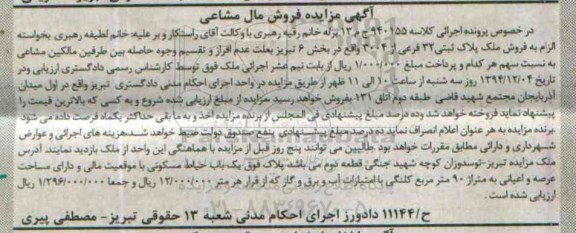 آگهی مزایده فروش مال مشاعی
در خصوص پرونده اجرائی کلاسه ۹۴۰۱۵۵ ج ۱۳ له خانم رقیه رهبری با وکالت آقای راستکار و بر علیه: خانم لطیفه رهبری بخواسته
الزام به فروش ملک پلاک ثبتی ۳۲ فرعی از ۳۰۰۴ واقع در بخش ۶ تبریز بعلت عدم افراز و تقسیم وجوه حاصله بین طرفین مالکین مشاعی
به نسبت سهم هر کدام و پرداخت مبلغ ۱/۰۰۰/۰۰۰ ریال از بابت نیم عشر اجرائی ملک فوق توسط کارشناس رسمی دادگستری ارزیابی ودر
تاریخ ۱۳۹۴/۱۲/۰۴ روز سه شنبه از ساعت ۱۰ الی ۱۱ ظهر از طریق مزایده در واحد اجرای احکام مدنی دادگستری تبریز واقع در اول میدان
آذربایجان مجتمع شهید قاضی طبقه دوم اتاق ۱۳۱ بفروش خواهد رسید مزایده از مبلغ ارزیابی شده شروع و به کسی که بالاترین قیمت را
پیشنهاد نماید فروخته خواهد شد وده درصد مبلغ پیشنهادی فی المجلس از برنده مزایده اخذ و به مابقی حداکثر یکماه فرصت داده می شود
برنده مزایده به هر عنوان اعلام انصراف نماید ده درصد مبلغ پیشنهادی بنفع صندوق دولت ضبط خواهد شد.هزینه های اجرائی و عوارض
شهرداری و دارائی مطابق مقررات خواهد بود طالبین می توانند پنج روز قبل از مزایده با هماهنگی این واحد از ملک بازدید نمایند. آدرس
ملک مزایده تبریز-توسدوزان کوچه شهید جنگی قطعه دوم می باشد پلاک فوق یک باب خیاط مسکونی با موقعیت مالی و دارای مساحت
عرصه و اعیانی به متراژ ۹۰ متر مربع کلنگی با امتیازات آب و برق و گاز که از قرار هر متر ۱۳/۰۰۰/۰۰۰ ریال و جمعا ۱/۲۹۶/۰۰۰/۰۰۰ ریال
ارزیابی شده است.
ح/۱۱۱۴۴ دادورز اجرای احکام مدنی شعبه ۱۳ حقوقی تبریز- مصطفی پیری
۰۲۱-۸۸۳۴۹۶۷۰